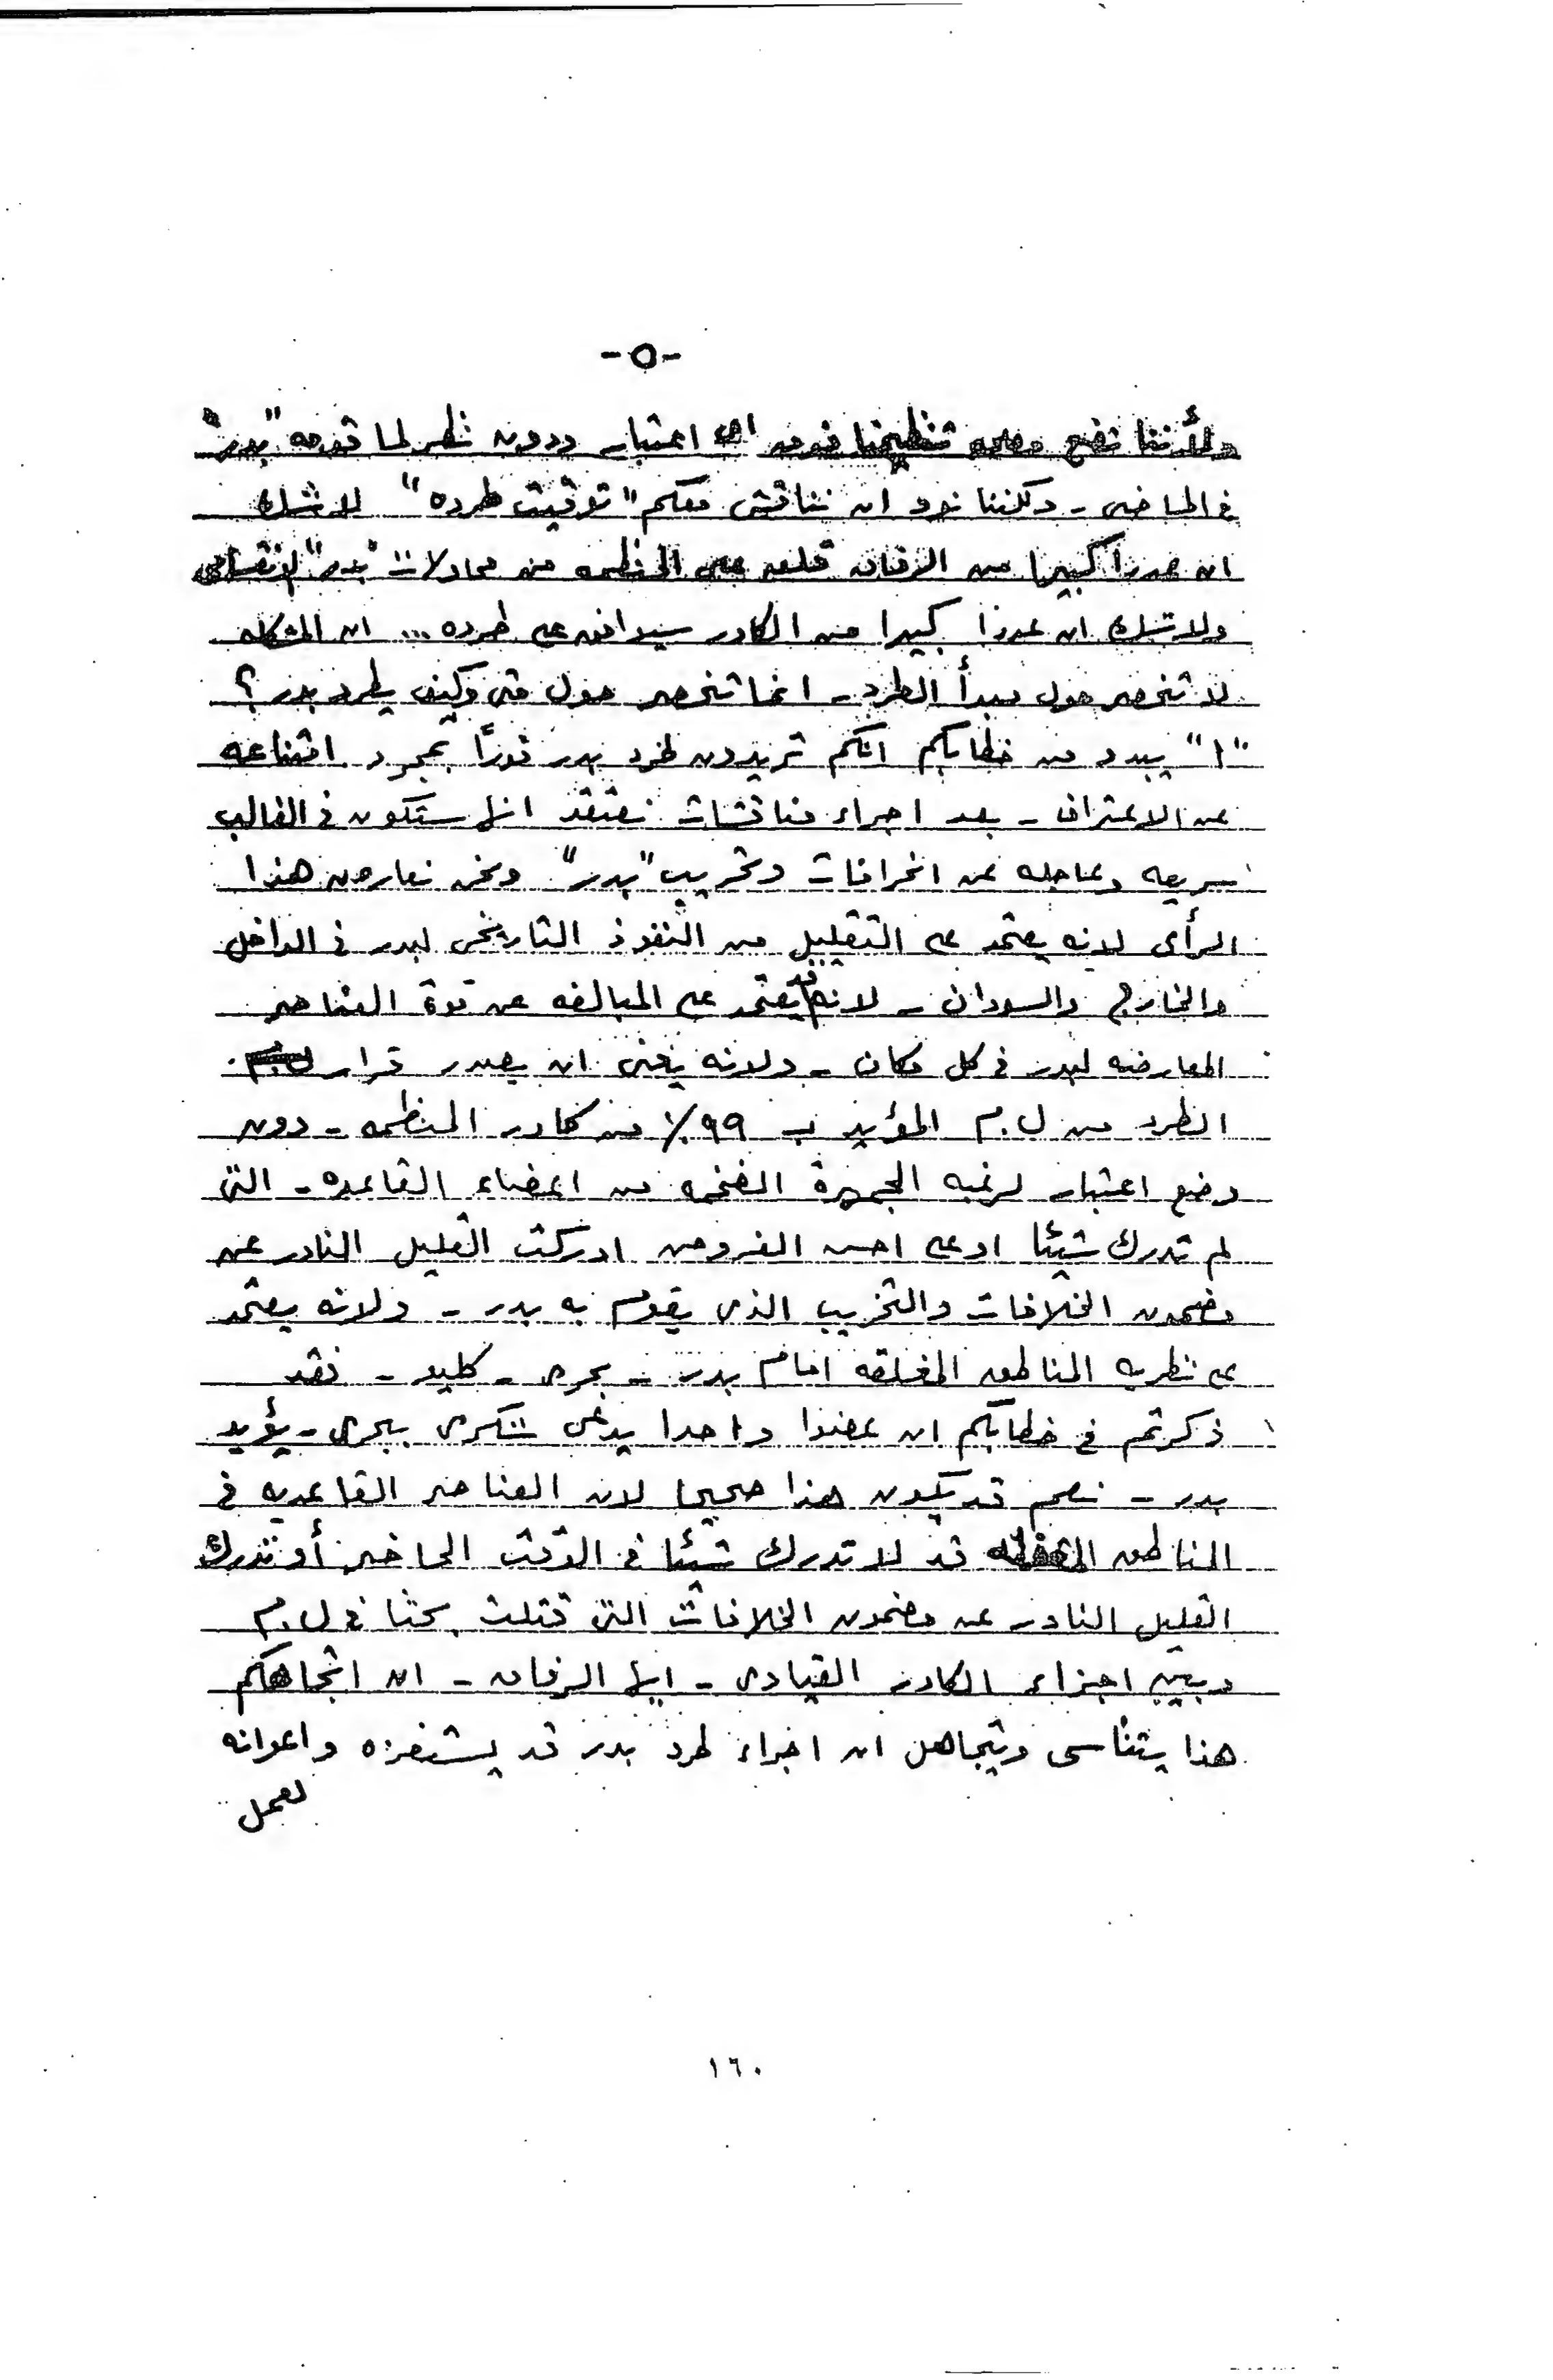 -٥-
ولأننا نضع مصلحه تنظيمنا فوق اى اعتبار ودون نظر لما قدمه "بدر"
فى الماضى - ولكننا نود ان نناقش معكم "توقيت طرده" لا شك
ان عددا كبيرا من الرفاق قلق على المنظمه من محاولات "بدر" لانقسامى
ولا شك ان عددا كبيرا من الكادر سيوافق على طرده ... ان المشكله
لا تنحصر حول مبدأ الطرد - انما تنحصر حول متى وكيف يطرد بدر ؟
"١" يبدو من خطابكم انكم تريدون طرد بدر فورًا بمجرد امتناعه
عن الاعتراف - بعد اجراء مناقشات نعتقد انها ستكون فى الغالب
سريعه وعاجله عن انحرافات وتخريب "بدر" ونحن نعارض هذا
الرأى لانه يعتمد على التقليل من النفوذ التاريخى لبدر فى الداخل
والخارج والسودان - لانه قد يعتمد على المبالغه عن قوة العناصر
المعارضه لبدر فى كل مكان - ولانه يعنى ان يصدر قرار
الطرد من ل.م المؤيد ب ٩٩٪ من كادر المنظمه - دون
وضع اعتبار لرغبه الجمهرة الضخمه من اعضاء القاعده - التى
لم تدرك شيئا او على احسن الفروض ادركت القليل النادر عن
مضمون الخلافات والتخريب الذى يقوم به بدر - ولانه يعتمد
على نظريه المناطق المغلقه امام بدر - بحرى - كليو - فقد
ذكرتم فى خطابكم ان عضوا واحدا يدعى شكرى ببحرى - يؤيد
بدر - نعم قد يكون هذا صحيحا لان العناصر القاعديه فى
المناطق المقفله قد لا تدرك شيئا فى الوقت الحاضر أو تدرك
القليل النادر عن مضمون الخلافات التى قتلت بحثا فى ل.م
وبين اجزاء الكادر القيادى - ايها الرفاق - ان اتجاهكم
هذا يتناسى ويتجاهل ان اجراء طرد بدر قد يستفزه واعوانه
لعمل
١٦٠